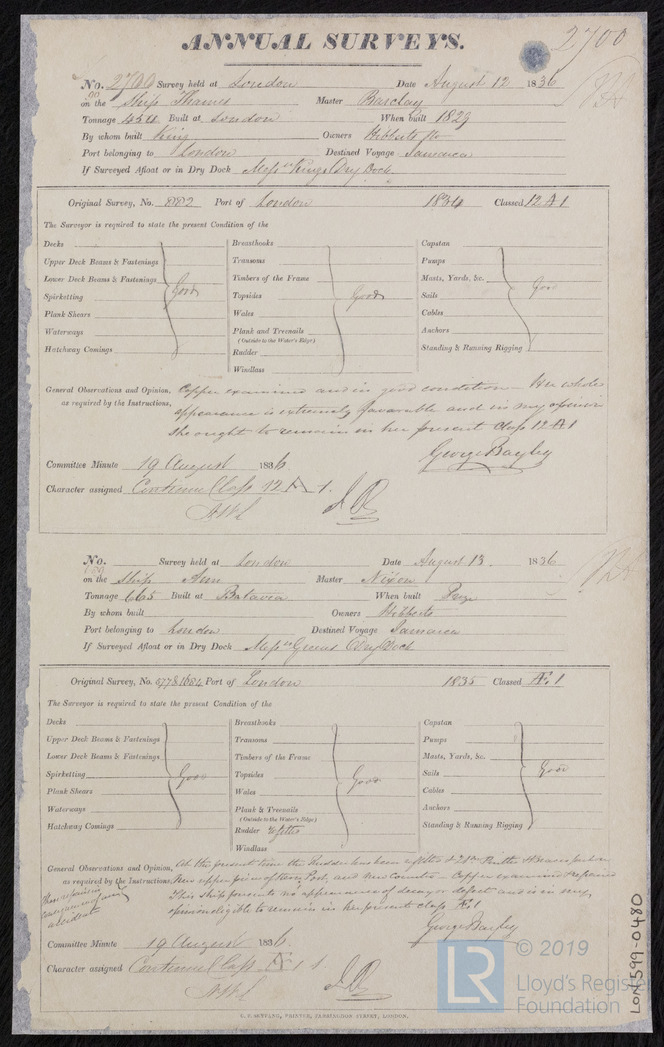 ANNUAL SURVEYS.
2700
No. 2700 Survey held at London Date August 12 1836
on the Ship Thames Master Barclay
Tonnage 454 Built at London When built 1829
By whom built King Owners Hibberts
Port belonging to London Destined Voyage Jamaica
If Surveyed Afloat or in Dry Dock Messrs Kings Dry Dock
Original Survey, No. 882 Port of London 1834 Classed 12 A 1
The Surveyor is required to state the present Condition of the
Decks
Upper Deck Beams & Fastenings
Lower Deck Beams & Fastenings
Spirketting
Plank Shears
Waterways
Hatchway Comings
Good
Breasthooks
Transoms
Timbers of the Frame
Topsides
Wales
Plank and Treenails
(Outside to the Water's Edge)
Rudder
Windlass
Good
Capstan
Pumps
Masts, Yards, &c.
Sails
Cables
Anchors
Standing & Running Rigging
Good
General Observations and Opinion, Copper examined and in good condition - Her whole
as required by the Instructions, appearance is extremely favorable and in my opinion
She ought to remain in her present Class 12 A 1
George Bayley
Committee Minute 19 August 1836
Character assigned Continue Class 12 A 1.
No. Survey held at London Date August 13 1836
on the Ship Ann Master Nixon
Tonnage 665 Built at Batavia When built
By whom built Owners Hibberts
Port belonging to London Destined Voyage Jamaica
If Surveyed Afloat or in Dry Dock Messrs Greens Dry Dock
Original Survey, No. 577&1684 Port of London 1835 Classed Æ 1
The Surveyor is required to state the present Condition of the
Decks
Upper Deck Beams & Fastenings
Lower Deck Beams & Fastenings
Spirketting
Plank Shears
Waterways
Hatchway Comings
Good
Breasthooks
Transoms
Timbers of the Frame
Topsides
Wales
Plank & Treenails
(Outside to the Water's Edge)
Rudder refitted
Windlass
Good
Capstan
Pumps
Masts, Yards, &c.
Sails
Cables
Anchors
Standing & Running Rigging
Good
General Observations and Opinion, At the present time the Rudder has been refitted
as required by the Instructions, New upper piece of Post, and New Counter - Copper examined & repaired
This Ship presents no appearances of decay or defect and is in my
opinion eligible to remain in her present class Æ 1
These repairs in consequence of an accident
George Bayley
Committee Minute 19 August 1836.
Character assigned Continue Class Æ 1
© 2019
LR
Lloyd's Register
Foundation
LON 599-0480